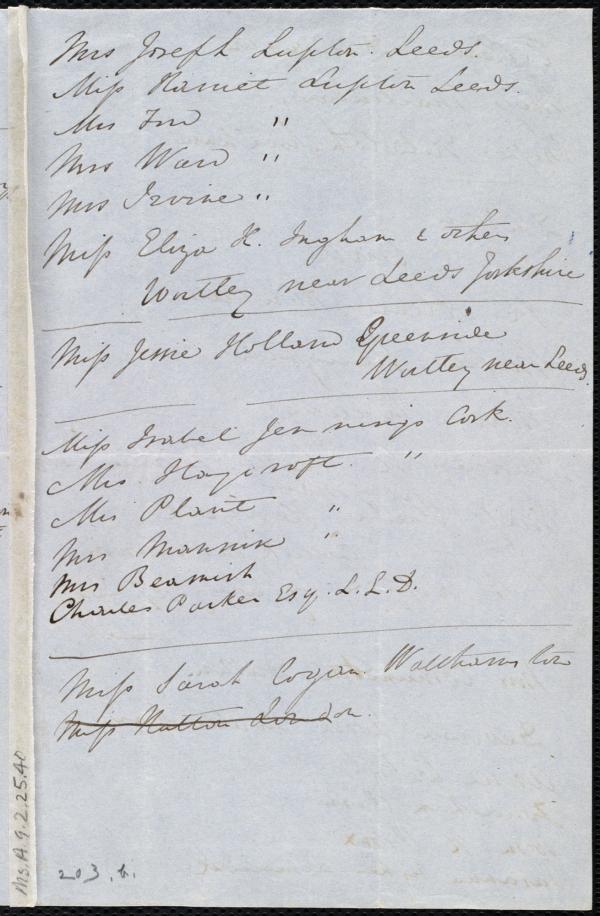 Mrs Joseph Lupton. Leeds.
Miss Harriet Lupton Leeds.
Mrs "
Mrs Ward "
Mrs Irvine "
Miss Eliza H. Ingham & others
Wortley near Leeds Yorkshire
Miss Jessie Holland Greenside
Wortley near Leeds.
Miss Isabel Jennings Cork.
Mrs Haycroft. "
Mrs Plant "
Mrs Mannix "
Mrs Beamish
Charles Parker Esq. L.L.D.
Miss Sarah Cogan Walthamstow
Miss Hutton London.
203.b.
Ms.A.9.2.25.40